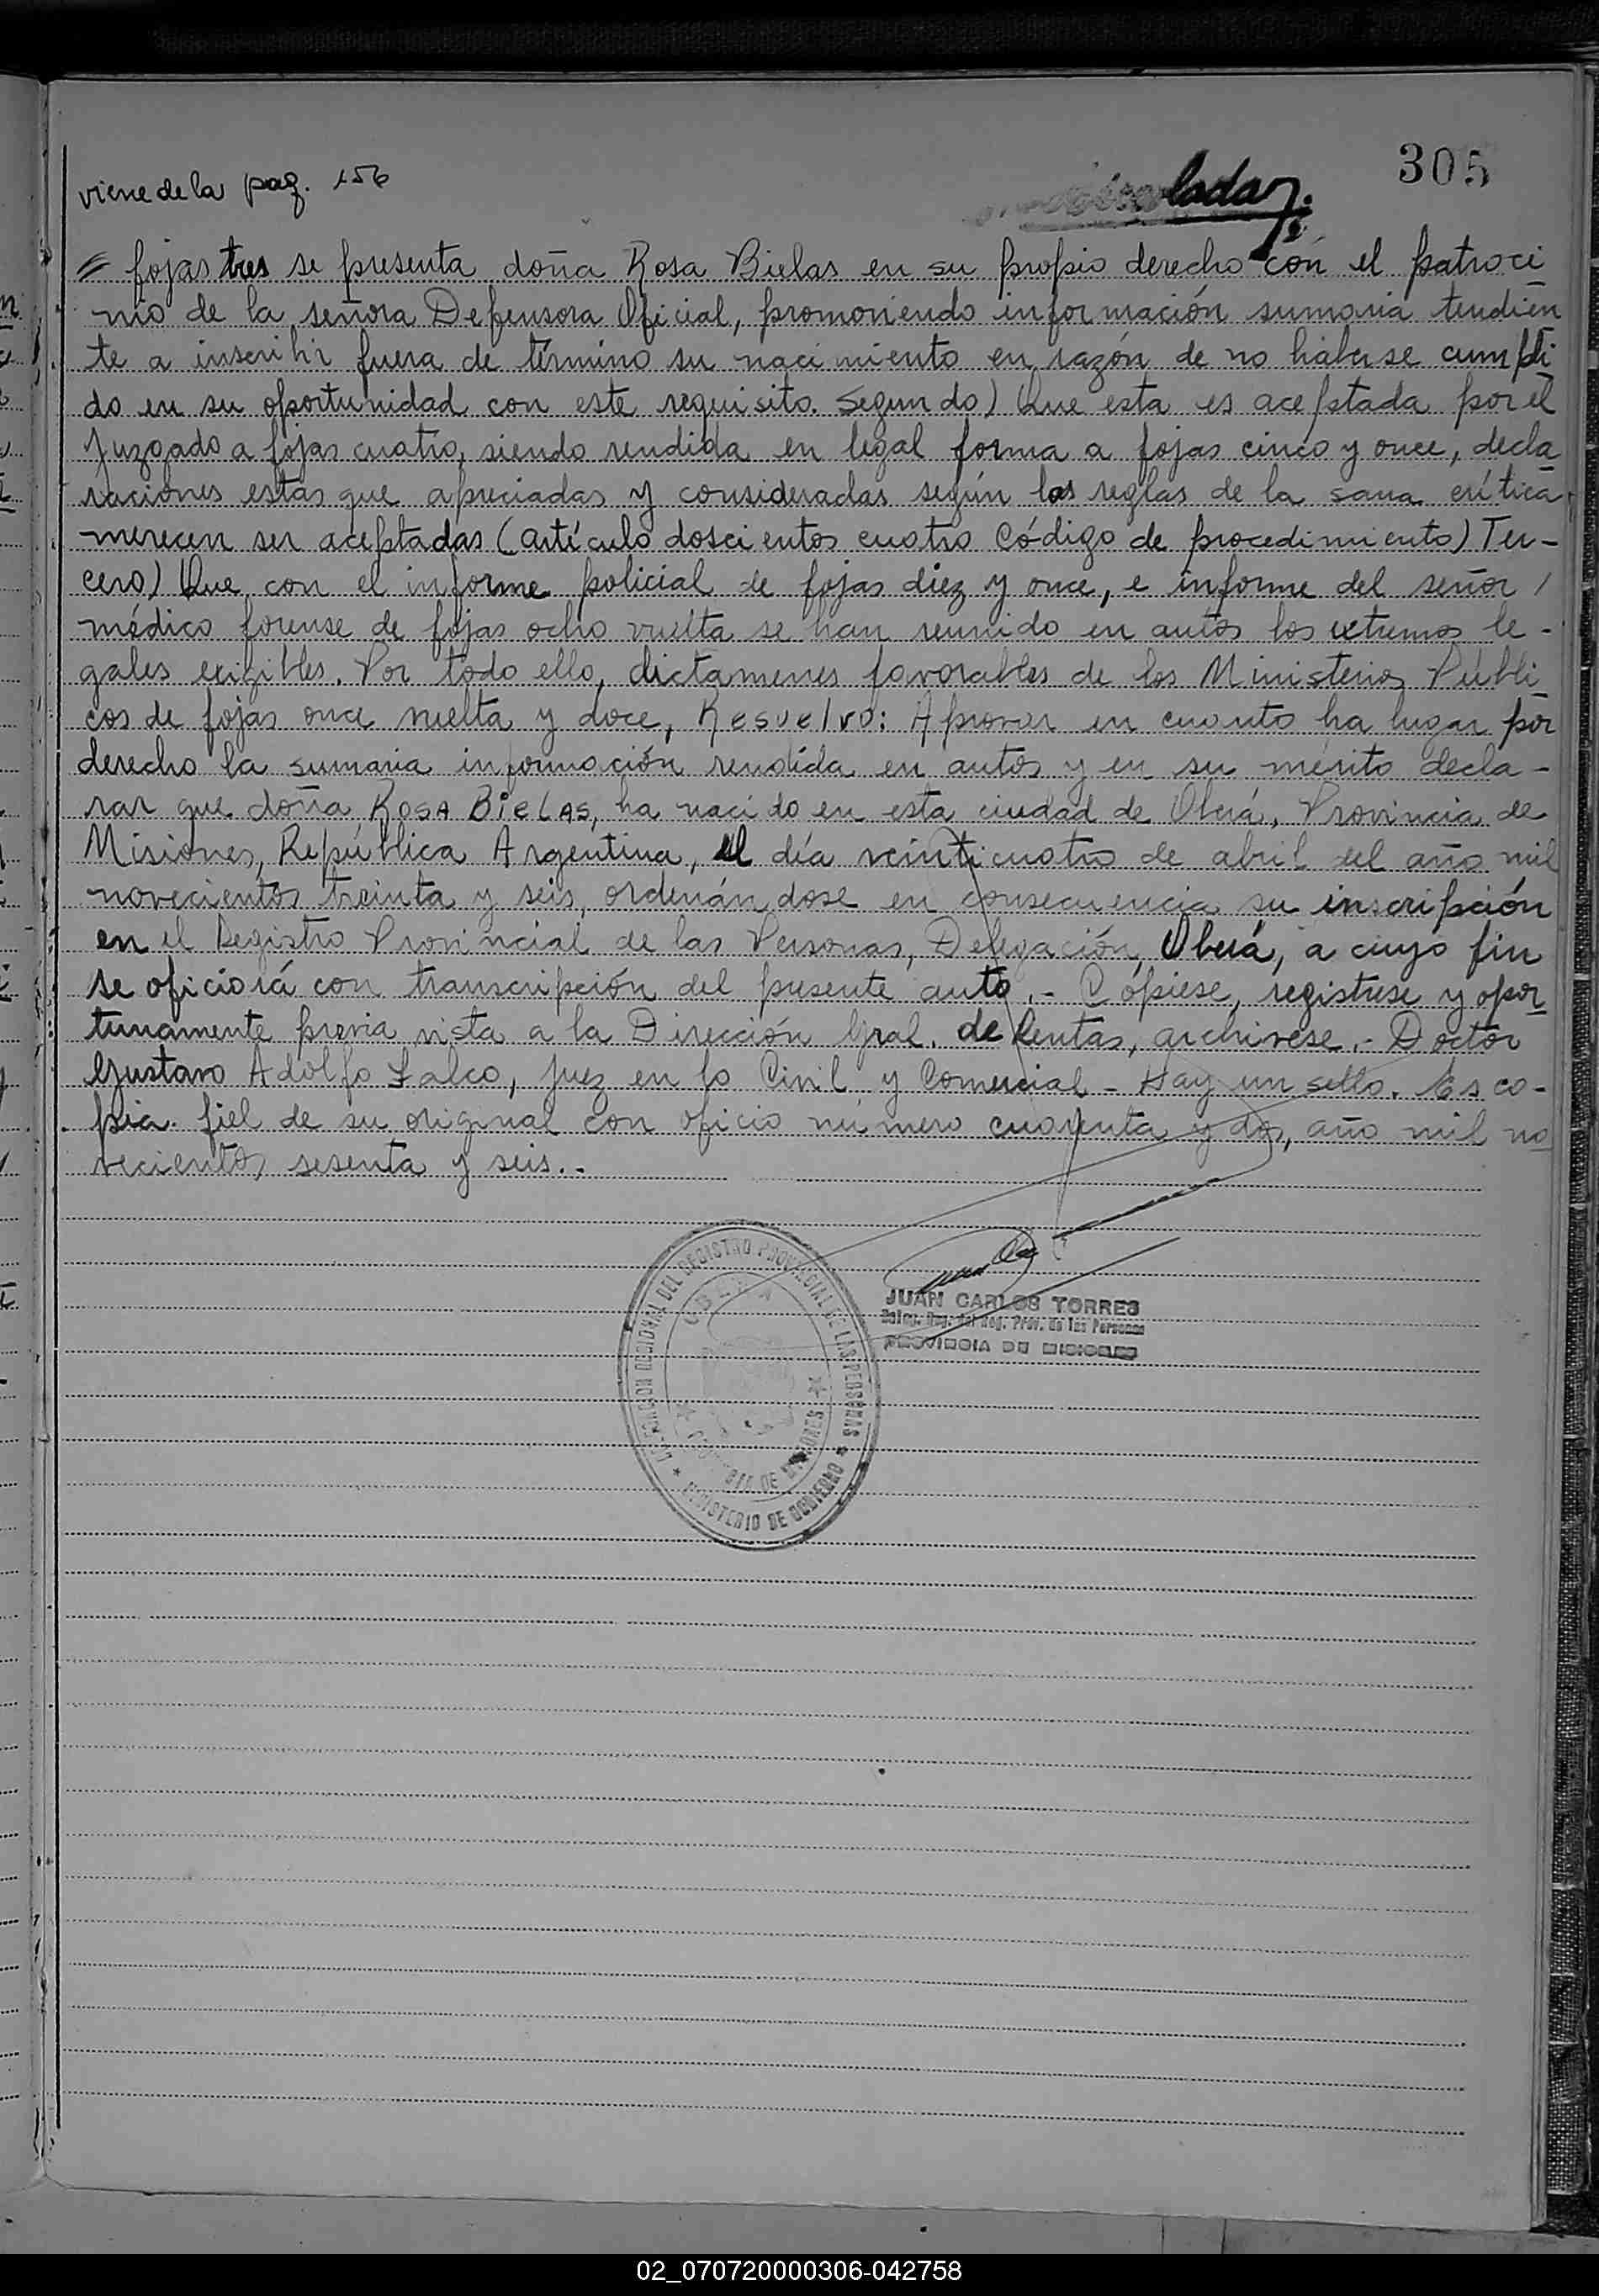 305
viene de la pag. 156
fojas tres se presenta doña Rosa Bielas en su propio derecho con el patroci
nio de la señora Defensora Oficial, promoviendo información sumaria tendien
te a inscribir fuera de término su nacimiento en razón de no haberse cumpli
do en su oportunidad con este requisito. Segundo) Que esta es aceptada por el
Juzgado a fojas cuatro, siendo rendida en legal forma a fojas cinco y once, decla
raciones estas que apreciadas y consideradas según las reglas de la sana crítica
merecen ser aceptadas (artículo doscientos cuatro Código de procedimiento) Ter-
cero) Que con el informe policial de fojas diez y once, e informe del señor /
médico forense de fojas ocho vuelta se han reunido en autos los extremos le-
gales exigibles. Por todo ello, dictamenes favorables de los Ministerios Públi
cos de fojas once vuelta y doce, Resuelvo: Aprovar en cuanto ha lugar por
derecho la sumaria información rendida en autos y en su mérito decla-
rar que doña ROSA BIELAS, ha nacido en esta ciudad de Oberá, Provincia de
Misiones, República Argentina, el día veinticuatro de abril del año mil
novecientos treinta y seis, ordenándose en consecuencia su inscripción
en el Registro Provincial de las Personas, Delegación, Oberá, a cuyo fin
se oficiará con transcripción del presente auto.- Cópiese, registrese y opor
tunamente previa vista a la Dirección Gral. de Rentas, archívese.- Doctor
Gustavo Adolfo Lalco, Juez en lo Civil y Comercial - Hay un sello. Es co-
pia fiel de su original con oficio número cuarenta y dos, año mil no
vecientos sesenta y seis.-
DEL REGISTRO PROVINCIAL DE LAS PERSONAS
OBERA
DE MISIONES
MINISTERIO DE GOBIERNO
JUAN CARLOS TORRES
Deleg. Reg. del Reg. Prov. de las Personas
PROVINCIA DE MISIONES
02_070720000306-042758